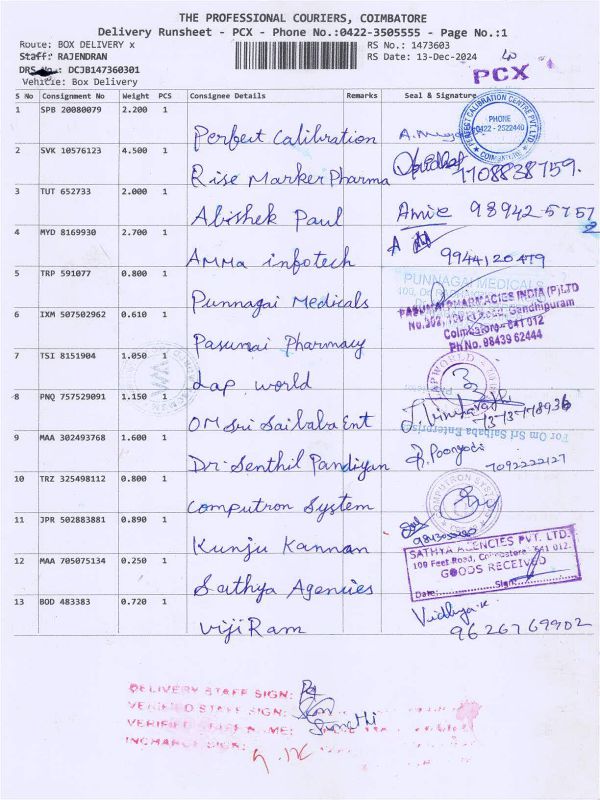 THE PROFESSIONAL COURIERS, COIMBATORE
Delivery Runsheet - PCX - Phone No.:0422-3505555 - Page No.:1
Route: BOX DELIVERY x RS No.: 1473603
Staff: RAJENDRAN RS Date: 13-Dec-2024
DRS No.: DCJB147360301 PCX
Vehicle: Box Delivery
S No Consignment No Weight PCS Consignee Details Remarks Seal & Signature
1 SPB 20080079 2.200 1 Perfect Calibration
PERFECT CALIBRATION CENTRE PVT LTD PHONE 0422 - 2522440 COIMBATORE
2 SVK 10576123 4.500 1 Rise Marker Pharma 7708838759.
3 TUT 652733 2.000 1 Abishek Paul 98942 5757
4 MYD 8169930 2.700 1 AMMa infotech 9944120479
5 TRP 591077 0.800 1 Punnagai Medicals
PUNNAGAI MEDICALS
6 IXM 507502962 0.610 1 Pasumai Pharmacy
PASUMAI PHARMACIES INDIA (P) LTD
Gandhipuram
Coimbatore - 641 012
Ph No. 98439 62444
7 TSI 8151904 1.050 1 Lap world
8 PNQ 757529091 1.150 1 OM Sri Saibaba Ent
For Om Sri Saibaba Enterprises
9 MAA 302493768 1.600 1 Dr. Senthil Pandiyan 7092222127
10 TRZ 325498112 0.800 1 Computron System
COMPUTRON SYSTEM
11 JPR 502883881 0.890 1 Kunju Kannan
12 MAA 705075134 0.250 1 Sathya Agencies
SATHYA AGENCIES PVT. LTD.
109 Feet Road, Coimbatore - 641 012.
GOODS RECEIVED
Date: Sign:
13 BOD 483383 0.720 1 Viji Ram Vidhya.K
9626769902
DELIVERY STAFF SIGN:
VERIFIED STAFF SIGN:
VERIFIED STAFF NAME:
INCHARGE SIGN: